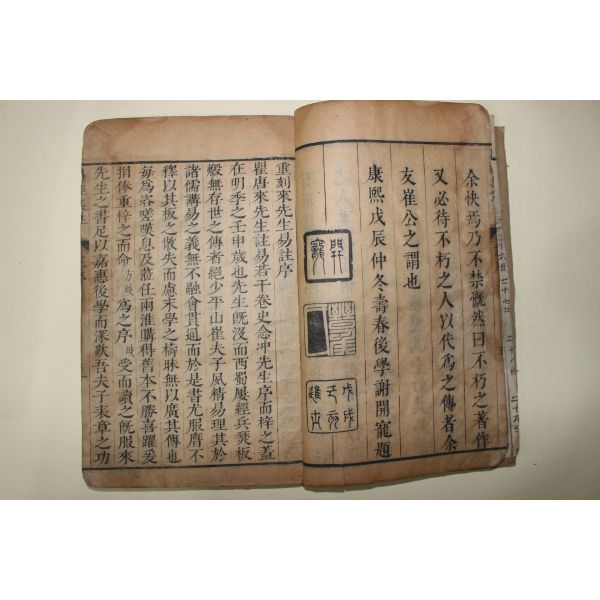 余快焉乃不禁慨然曰不朽之著作
又必待不朽之人以代爲之傳者余
友崔公之謂也
康熙戊辰仲冬壽春後學謝開寵題
開
寵
戊戌
重刻來先生易註序
瞿唐來先生註易若干卷史念冲先生序而梓之蓋
在明季之壬申歲也先生旣沒而西蜀屢經兵燹板
燬無存世之傳者絕少平山崔夫子夙精易理其於
諸儒講易之義無不融會貫通而於是書尤服膺不
釋以其板之散失而慮末學之檮昧無以廣其傳也
每爲咨嗟嘆息及涖任兩淮購得舊本不勝喜躍爰
捐俸重梓之而命 方岐 爲之序 岐 受而讀之旣服來
先生之書足以嘉惠後學而深歎吾夫子表章之功